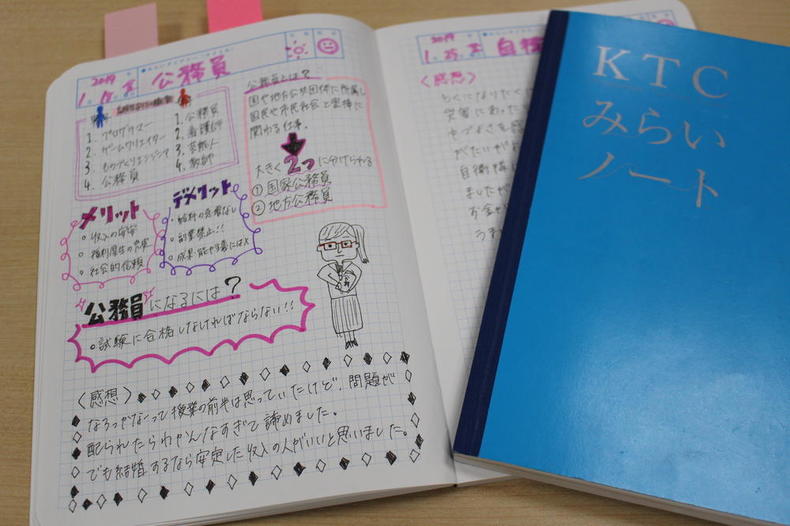 2019
1. 18. 金
公務員
1. プログラマー
2. ゲームクリエイター
3. ものづくりエンジニア
4. 公務員
1. 公務員
2. 看護師
3. 芸能人
4. 教師
公務員とは?
国や地方公共団体に所属し
国民や市民社会と密接に
関わる仕事。
大きく2つに分けられる
① 国家公務員
② 地方公務員
メリット
収入の安定
福利厚生の充実
社会的信頼
デメリット
副業禁止!!
公務員になるには?
試験に合格しなければならない!!
〈感想〉
なろっかなーって授業の前半は思っていたけど、問題が
配られたらわかんなすぎて諦めました。
でも結婚するなら安定した収入の人がいいと思いました。
2019
1. 25. 金
自衛
〈感想〉
KTC
みらい
ノート